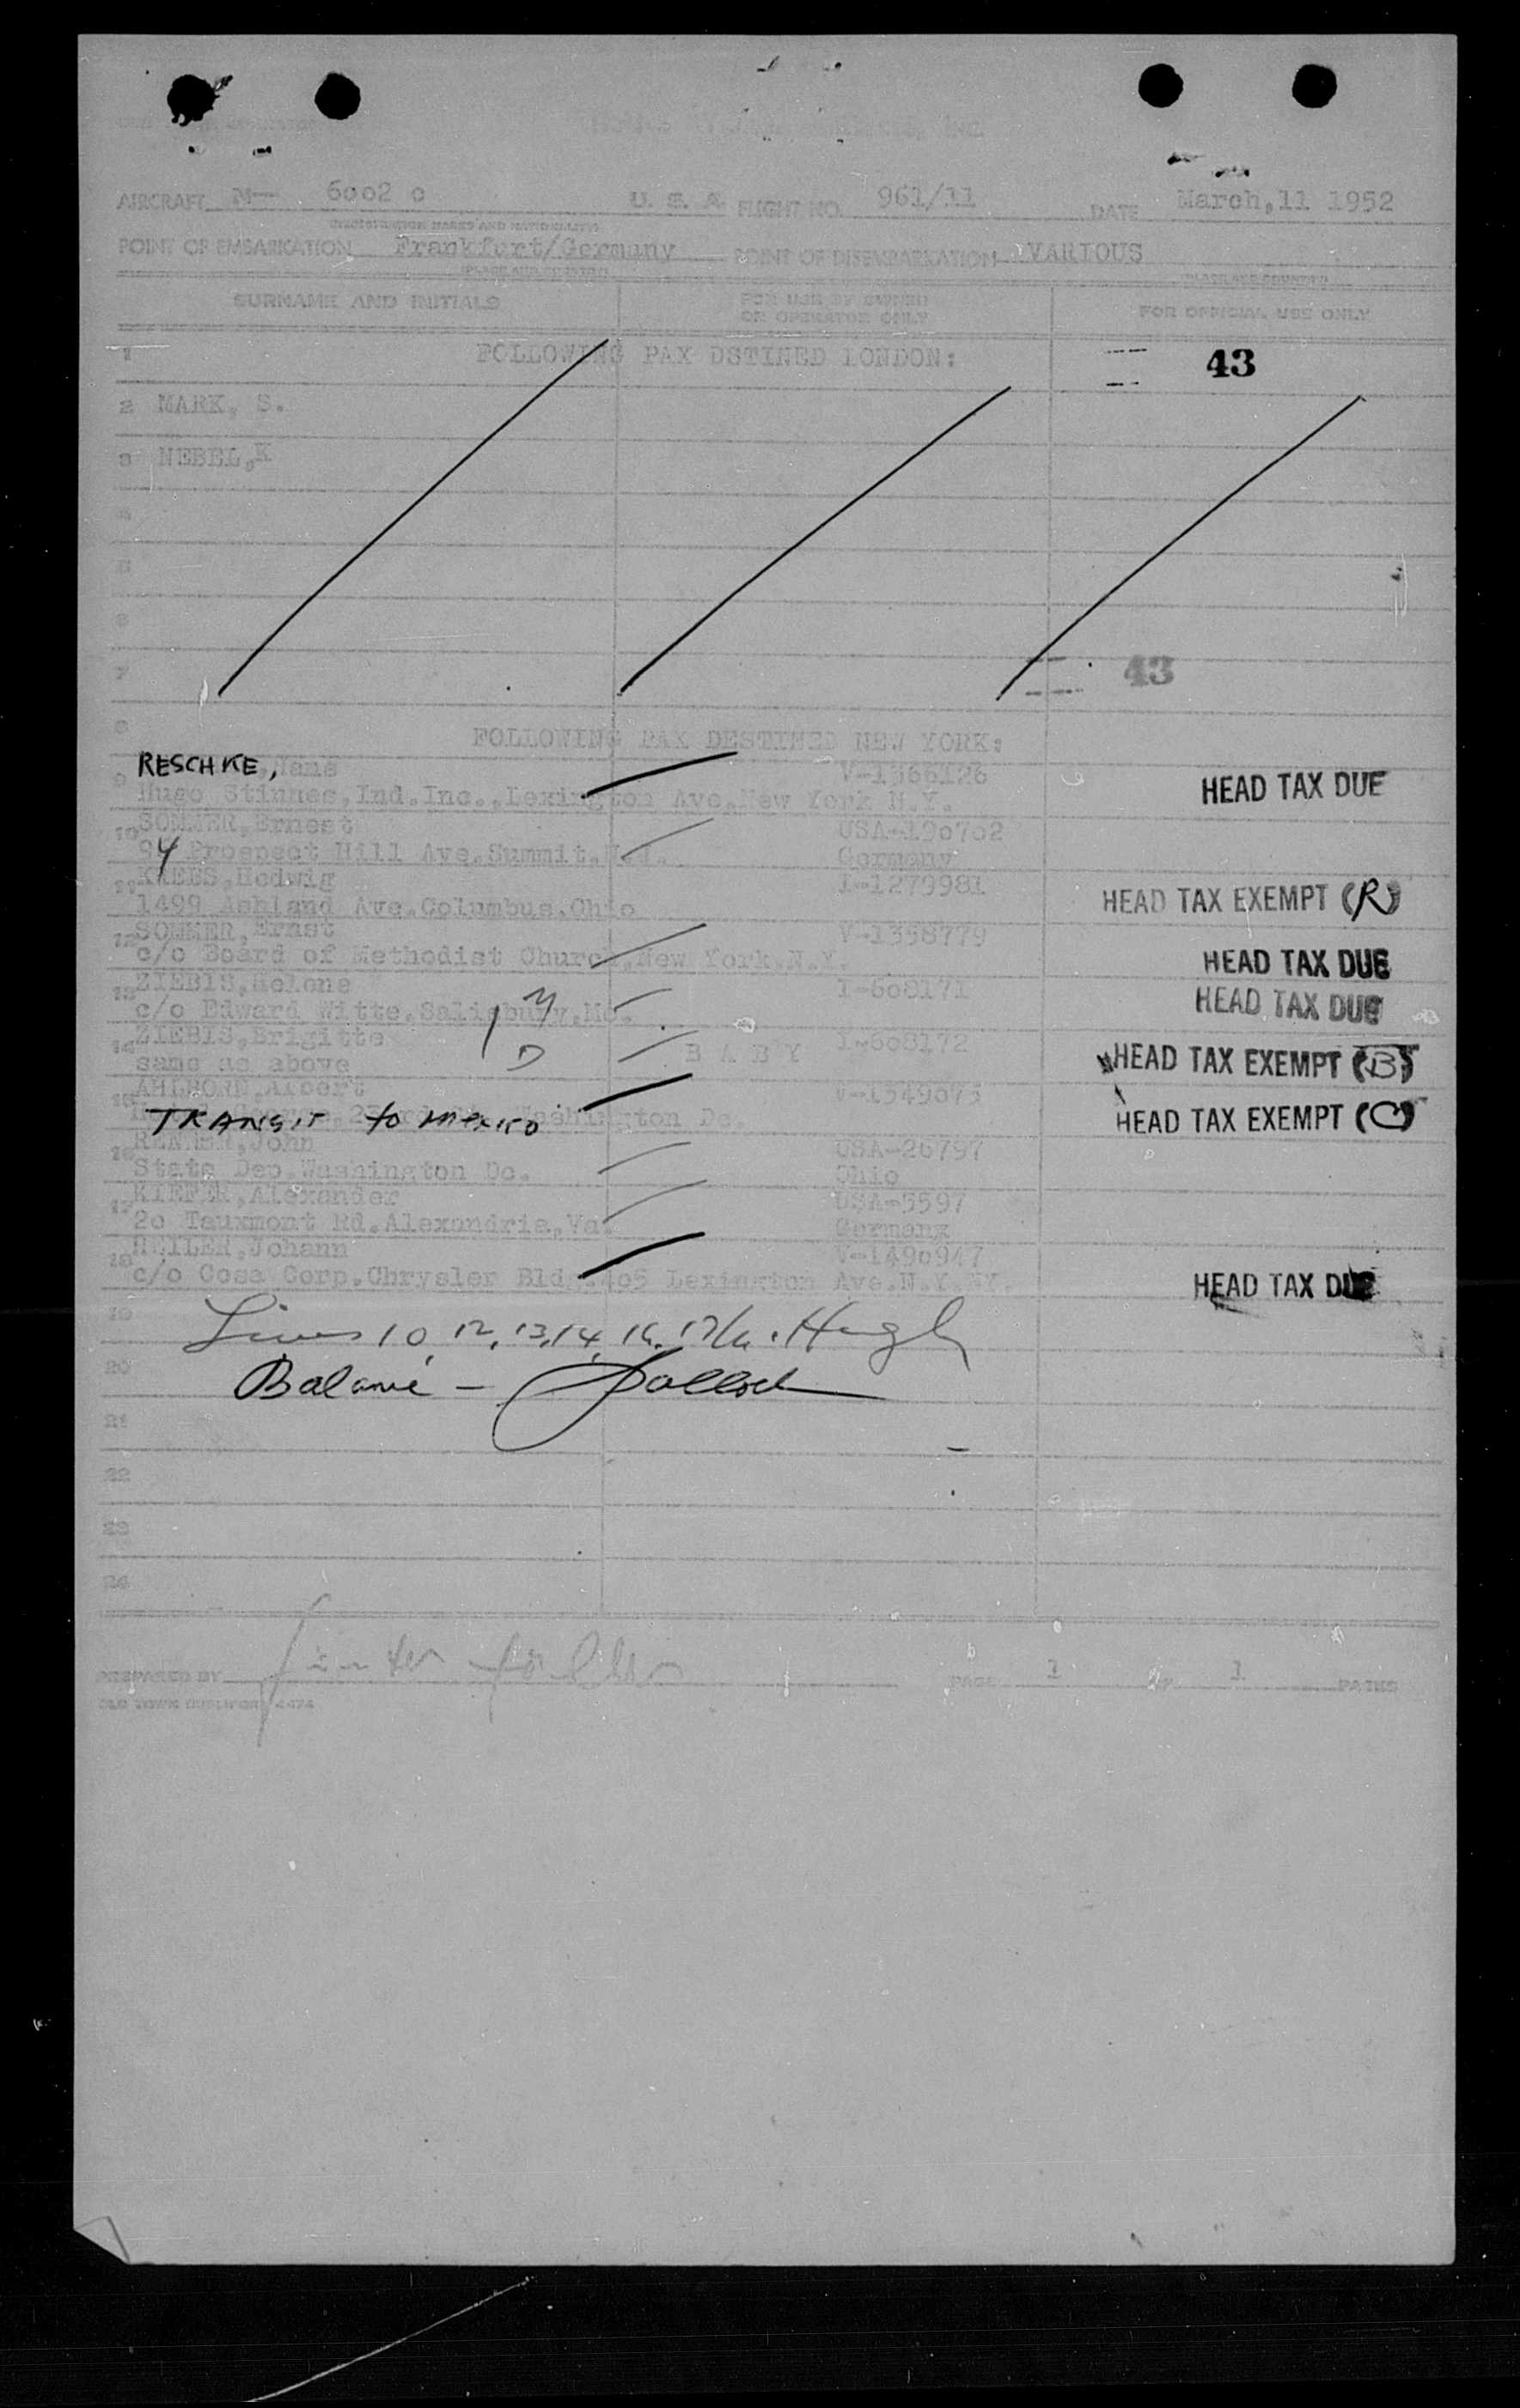 AIRCRAFT N— 6002 c U. S. A. FLIGHT NO. 961/11 DATE March,11 1952
REGISTRATION MARKS AND NATIONALITY
POINT OF EMBARKATION Frankfurt/Germany POINT OF DISEMBARKATION VARIOUS
(PLACE AND COUNTRY) (PLACE AND COUNTRY)
SURNAME AND INITIALS FOR USE BY OWNER OR OPERATOR ONLY FOR OFFICIAL USE ONLY
1 FOLLOWING PAX DSTINED LONDON: 43
2 MARK, S.
3 NEBEL,K
4
5
6
7 43
8 FOLLOWING PAX DESTINED NEW YORK:
9 RESCHKE, Hans V-1366126
Hugo Stinnes,Ind.Inc.,Lexington Ave,New York N.Y. HEAD TAX DUE
10 SOMMER,Ernest USA-190702
94 Prospect Hill Ave.Summit,N.J. Germany
11 KREBS,Hedwig I-1279981
1499 Ashland Ave.Columbus.Ohio HEAD TAX EXEMPT (R)
12 SOMMER,Ernst V-1358779
c/o Board of Methodist Church,New York.N.Y. HEAD TAX DUE
13 ZIEBIS,Helene I-608171
c/o Edward Witte.Salisbury,Mo. M HEAD TAX DUE
14 ZIEBIS,Brigitte B A B Y I-608172
same as above D HEAD TAX EXEMPT (B)
15 AHLBORN,Albert V-1349073
TRANSIT to MEXICO Washington Dc. HEAD TAX EXEMPT (C)
16 John USA-26797
State Dep.Washington Dc. Ohio
17 KIEFER,Alexander USA-5597
20 Tauxmont Rd.Alexandria,Va. Germany
18 HEILER,Johann V-1490947
c/o Cosa Corp.Chrysler Bldg.405 Lexington Ave.N.Y.NY. HEAD TAX DUE
19 Lines 10, 12, 13, 14, 16, 17
20 Balance -
21
22
23
24
PREPARED BY PAGE 1 OF 1 PAGES
OLD TOWN DUPLIFORM 4474